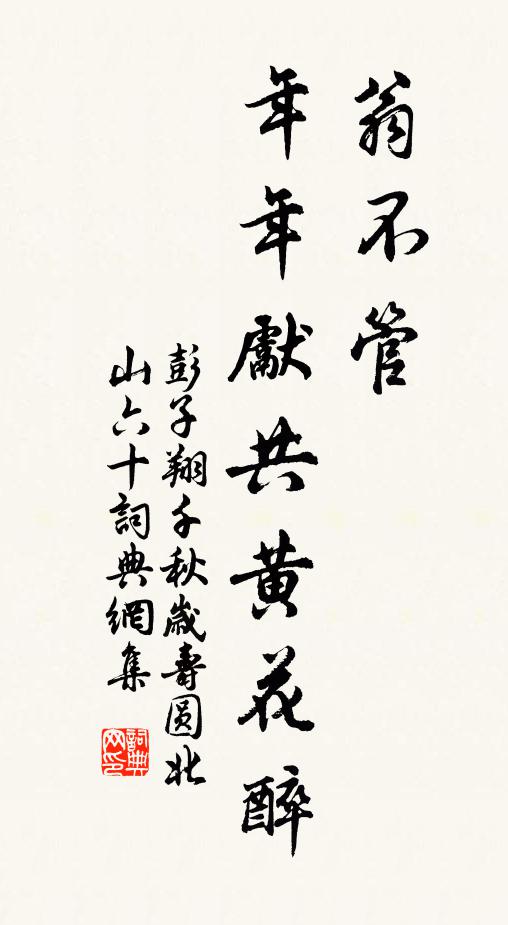 翁不管
年年獻共黄花醉
彭子翔千秋歲壽圆北
山六十詞典網集
詞典
网印